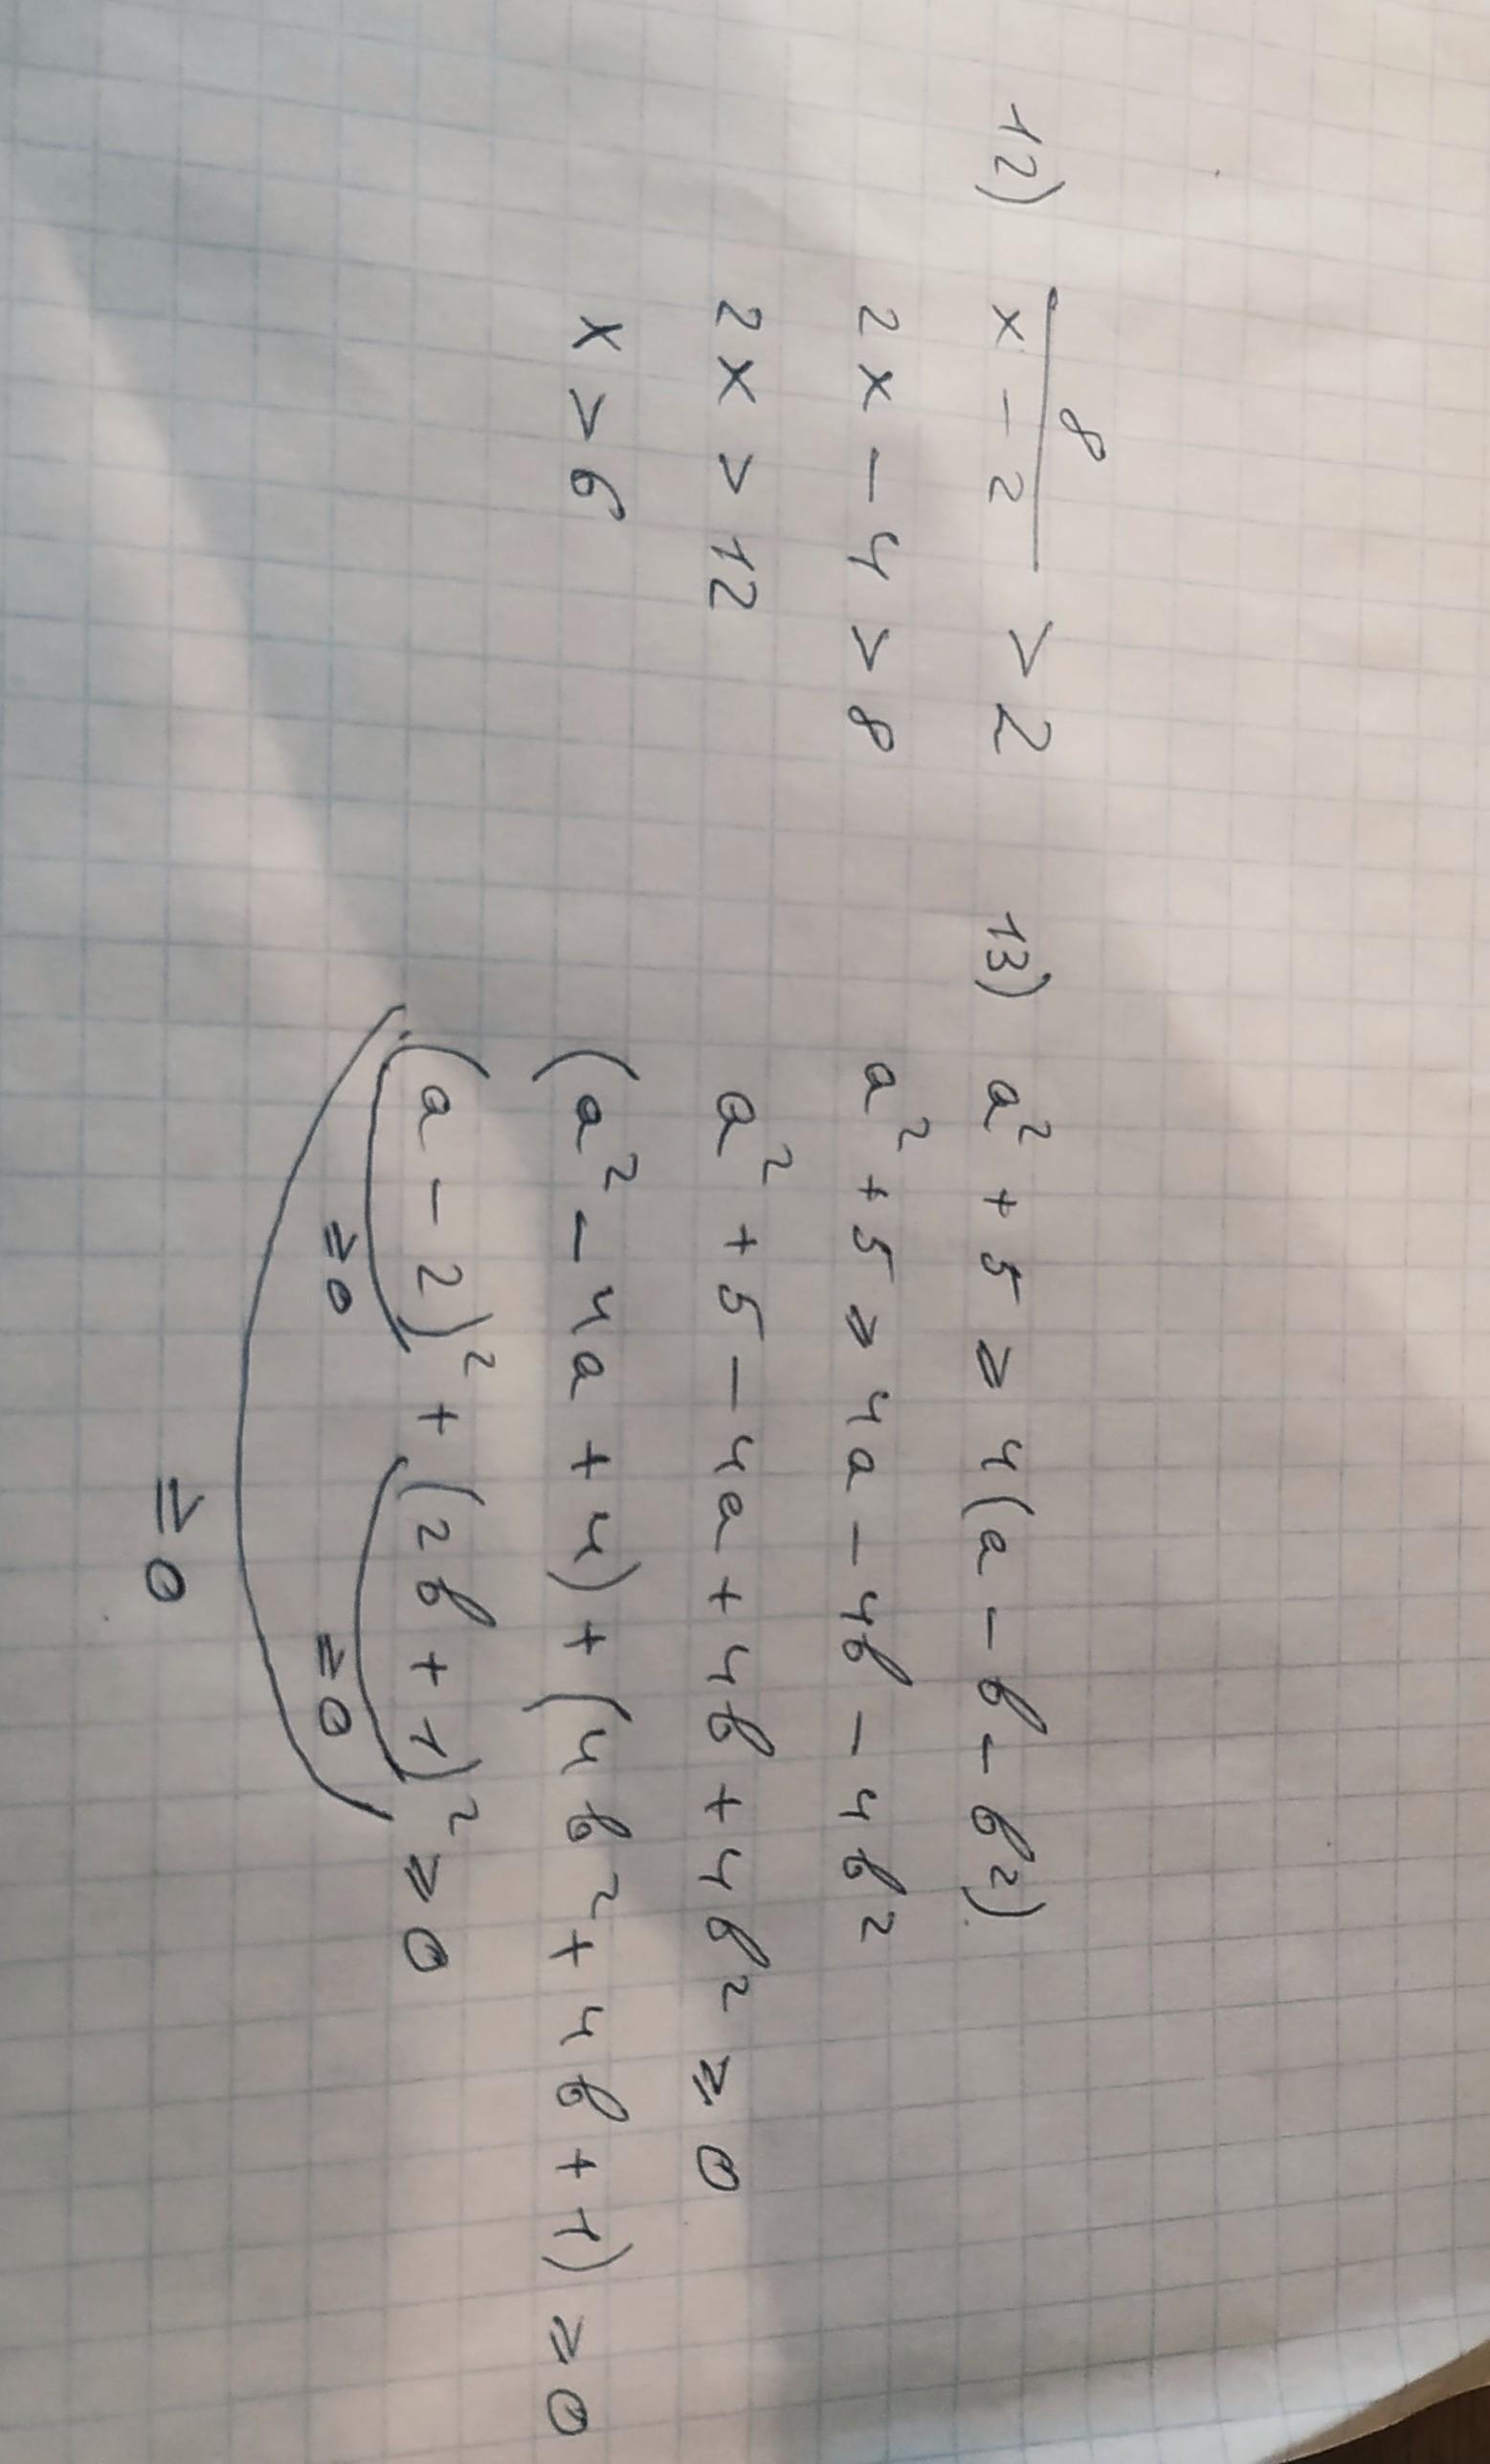 12) 8/(x - 2) > 2
2x - 4 > 8
2x > 12
x > 6
13) a² + 5 ≥ 4(a - в - в²)
a² + 5 ≥ 4a - 4в - 4в²
a² + 5 - 4a + 4в + 4в² ≥ 0
(a² - 4a + 4) + (4в² + 4в + 1) ≥ 0
(a - 2)² + (2в + 1)² ≥ 0
≥ 0 ≥ 0
≥ 0